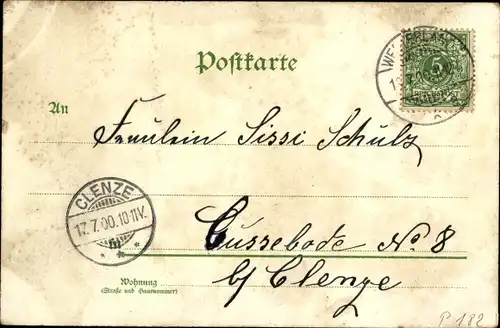 Postkarte
An
Fräulein Sissi Schulz
CLENZE
17.7.00.10-11V.
Cussebode No. 8
b/ Clenze
Wohnung
(Straße und Hausnummer)
P 182